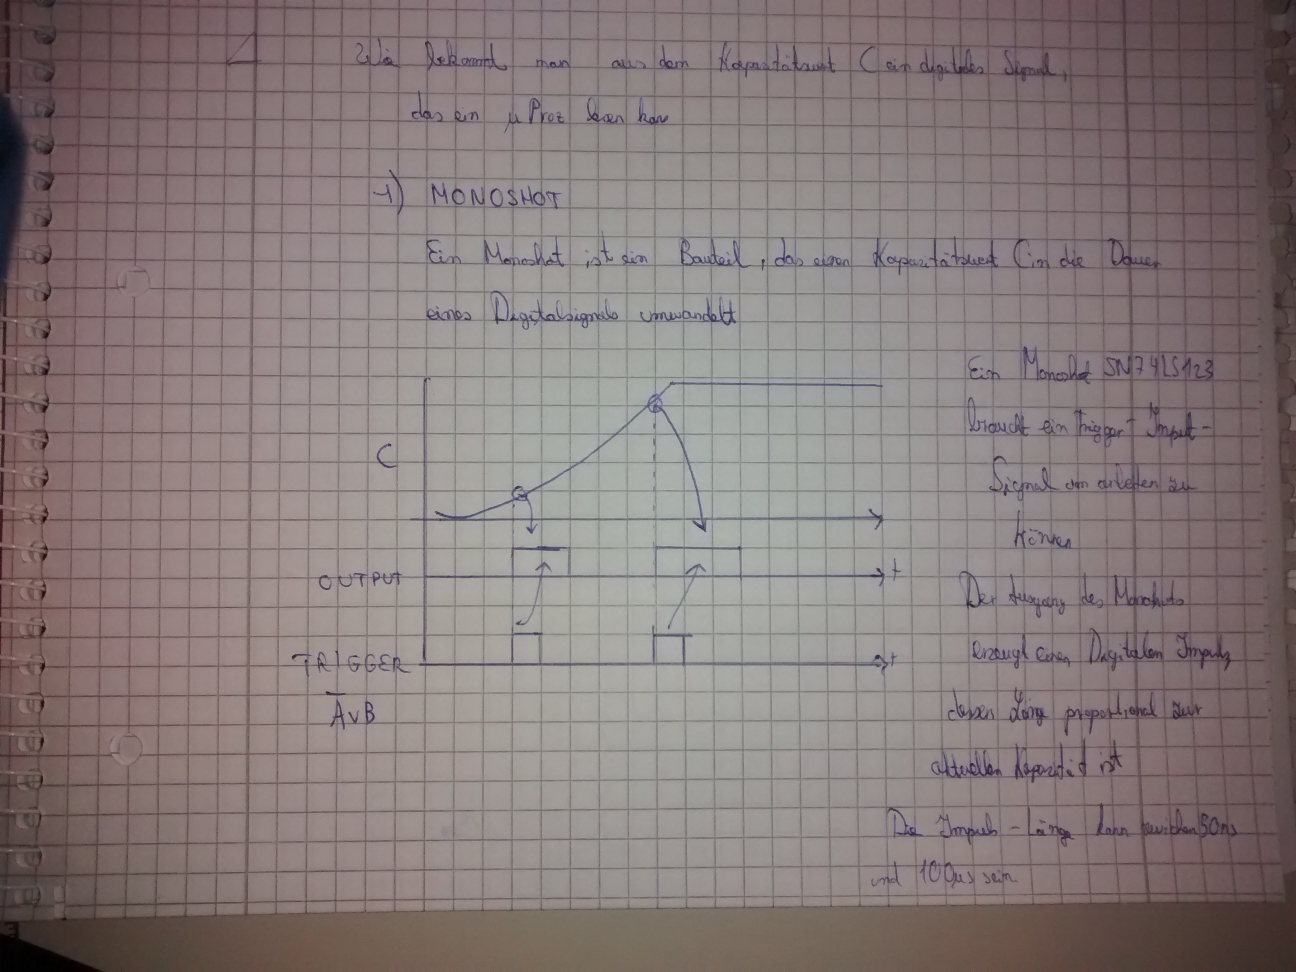 Wie bekommt man aus dem Kapazitätswert C ein digitales Signal,
das ein µProz lesen kann
1) MONOSHOT
Ein Monoshot ist ein Bauteil, das einen Kapazitätswert C in die Dauer
eines Digitalsignals umwandelt
C
OUTPUT
t
TRIGGER
t
A̅vB
Ein Monoshot SN74LS123
braucht ein Trigger-Input-
Signal um arbeiten zu
können
Der Ausgang des Monoshots
erzeugt einen Digitalen Impuls,
dessen Länge proportional zur
aktuellen Kapazität ist
Die Impuls-Länge kann zwischen 50ns
und 100µs sein